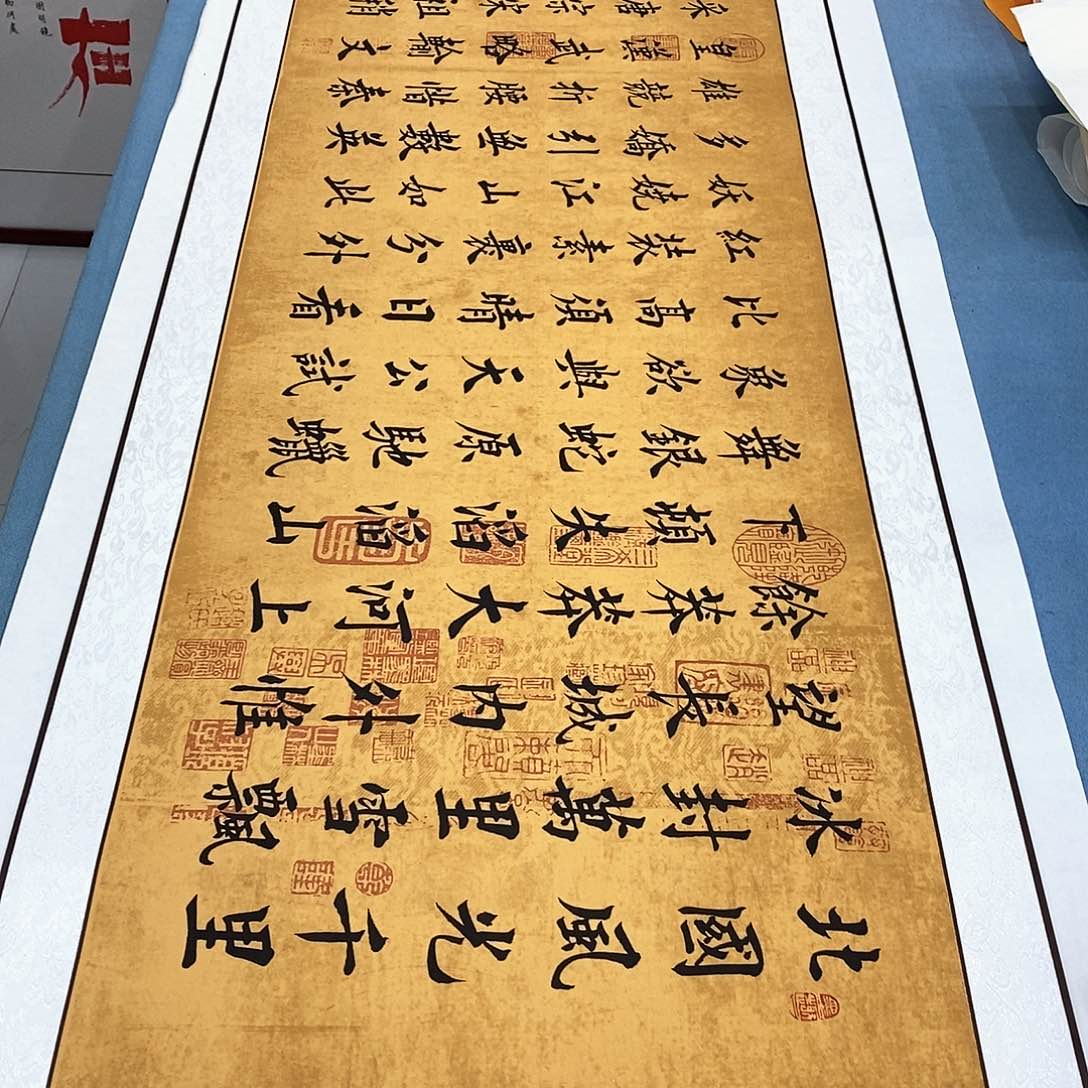 北國風光千里
冰封萬里雪飄
望長城内外惟
餘莽莽大河上
下頓失滔滔山
舞銀蛇原馳蠟
象欲與天公試
比高須晴日看
紅妝素裹分外
妖嬈江山如此
多嬌引無數英
雄競折腰惜秦
皇漢武略輸文
采唐宗宋祖稍